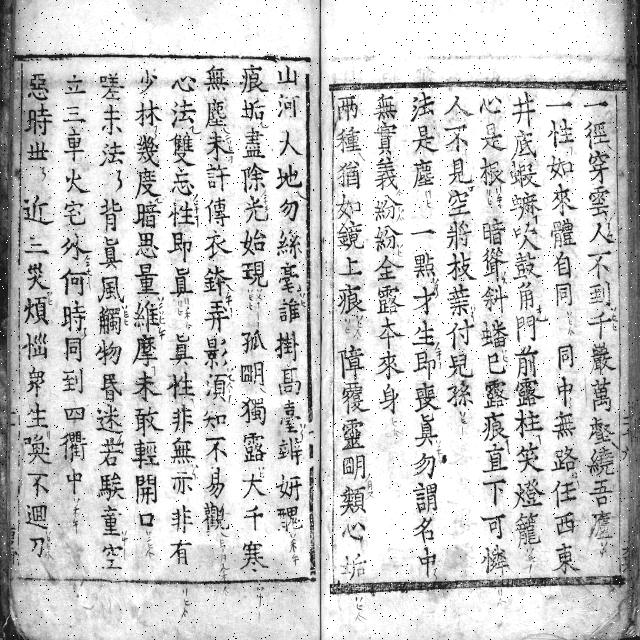 一徑穿雲人不到千巖萬壑繞吾廬
一性如來體自同　同中無路任西東
井底蝦蟆吹鼓角門前露柱笑燈籠
心是根　暗聳斜蟠已露痕直下可憐
人不見空將枝葉付兒孫
法是塵　一點才生即喪眞勿謂名中
無實義紛紛全露本來身
兩種猶如鏡上痕　障覆靈明類心垢
山河大地勿絲毫誰掛高臺辨妍醜
痕垢盡除光始現　孤明獨露大千寒
無塵未許傳衣鉢弄影須知不易觀
心法雙忘性即眞　眞性非無亦非有
少林幾度暗思量維摩未敢輕開口
嗟末法　背眞風觸物昏迷若騃童空
立三車火宅外何時同到四衢中
惡時世　近三災煩惱衆生喚不迴刀